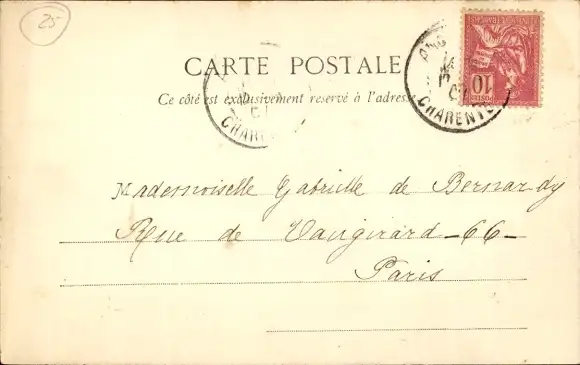 25
CARTE POSTALE
Ce côté est exclusivement reservé à l'adresse
CHARENTE
10
Mademoiselle Gabrielle de Bernardy
Rue de Vaugirard - 66 -
Paris